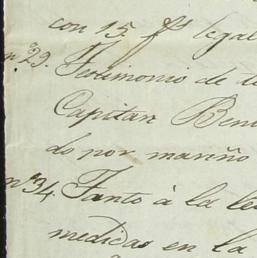 con 15 fs legal
nº 23. Testimonio de
Capitan Ben
do por mariño
nº 34 Tanto à la le
medidas en la